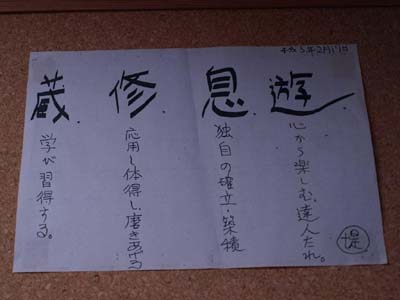 蔵.修.息.遊.
学び習得する。
応用し体得し、磨きあげる
独自の確立・築積
心から楽しむ、達人たれ。
堤